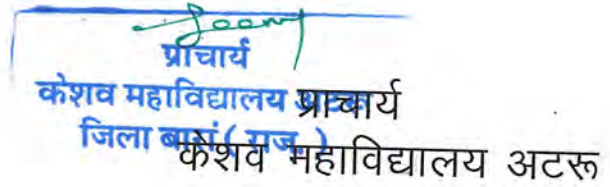 प्राचार्य
केशव महाविद्यालय
जिला बारां ( राज. )
प्राचार्य
केशव महाविद्यालय अटरू